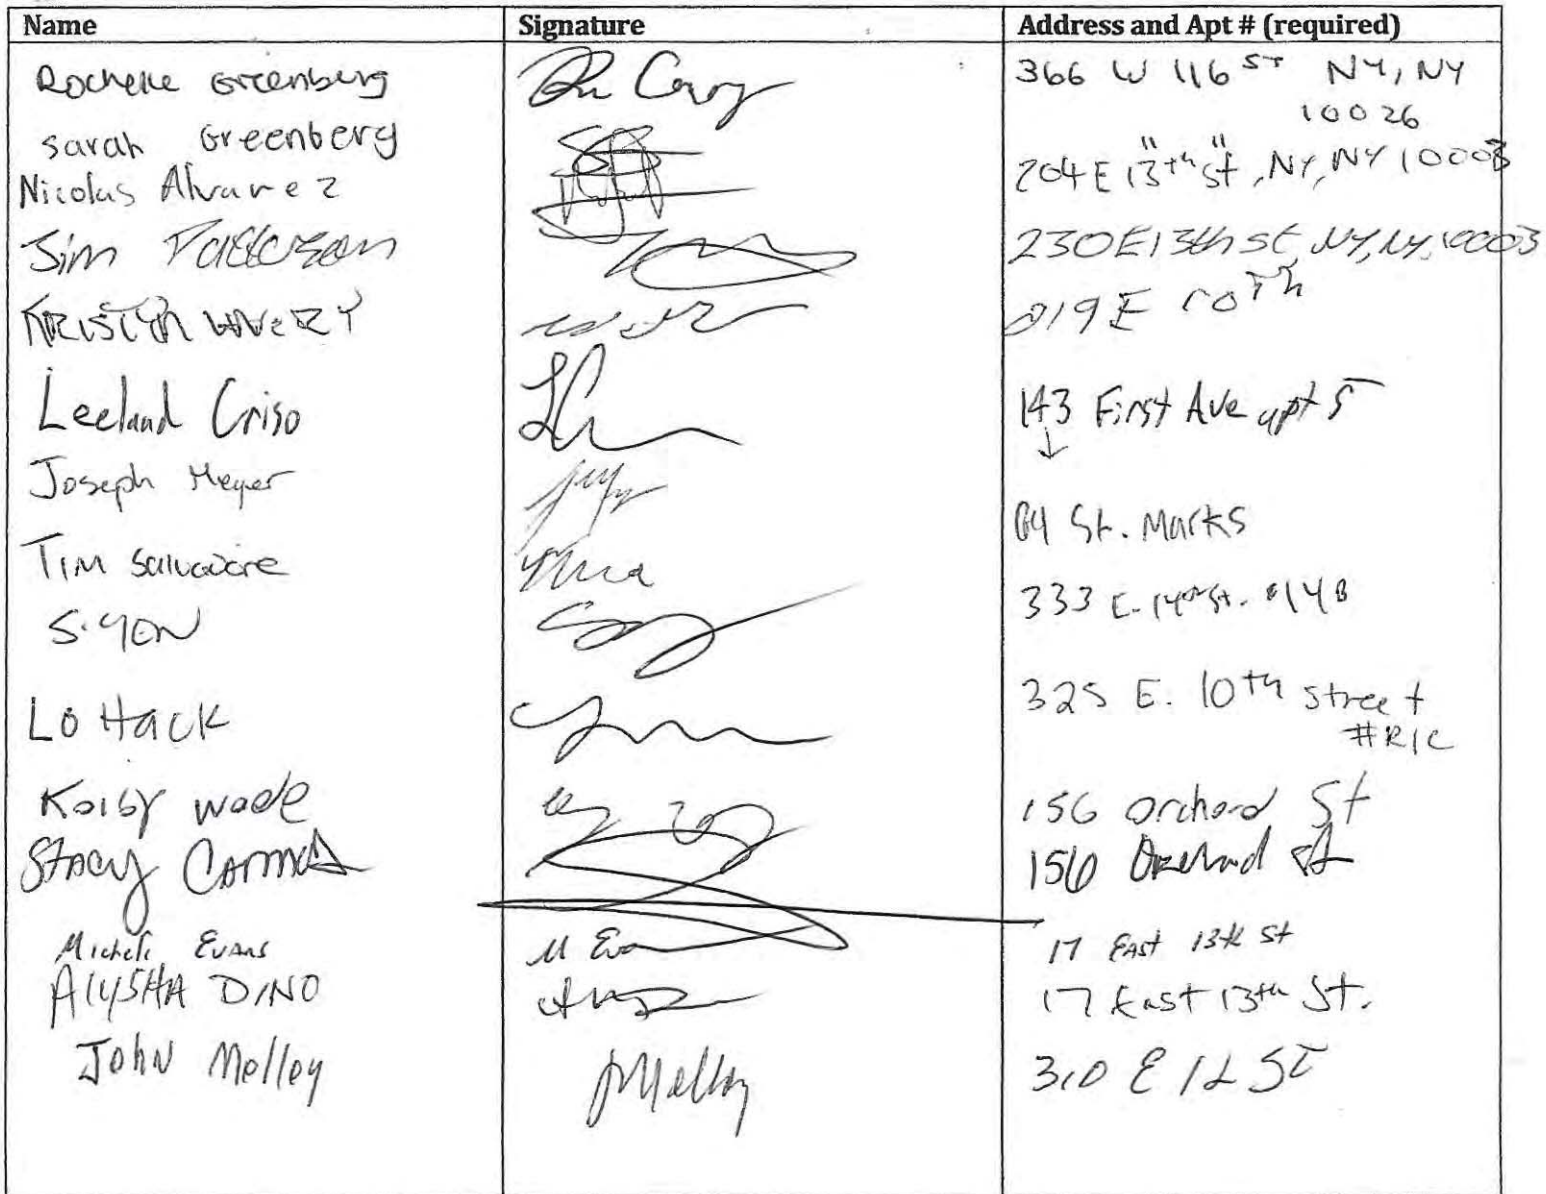 Name Signature Address and Apt # (required)
Rochelle Greenberg 366 W 116 ST NY, NY
10026
Sarah Greenberg " "
Nicolas Alvarez 204 E 13th St, NY, NY 10003
Jim Patterson 230 E 13th St, NY, NY, 10003
219 E 10Th
Leeland Criso 143 First Ave apt 5
Joseph Meyer ↓
St. Marks
Tim Salvatore
S. YON 333 E. 14th St. #14B
Lo Hack 325 E. 10th Street
#R1C
Kolby Wade 156 Orchard St
Stacy 156 Orchard St
Michele Evans M Eva 17 East 13th St
ALYSHA DINO 17 East 13th St.
John Molloy JMolloy 310 E 12 ST